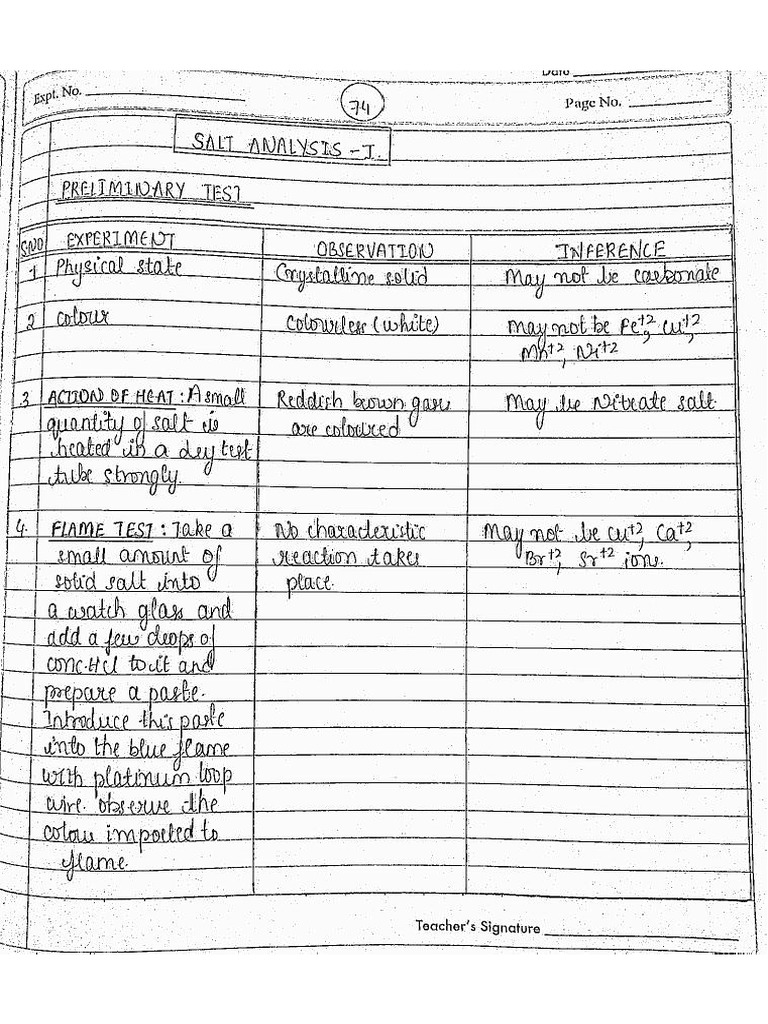 Date
Expt. No.
74
Page No.
SALT ANALYSIS -I.
PRELIMINARY TEST
S.NO EXPERIMENT OBSERVATION INFERENCE
1 Physical state Crystalline solid May not be carbonate
2 colour Colourless (white) May not be Fe+2, Cu+2,
Mn+2, Ni+2
3 ACTION OF HEAT: A small Reddish brown gases May be Nitrate salt
quantity of salt is are coloured
heated in a dry test
tube strongly.
4. FLAME TEST: Take a No characteristic May not be Cu+2, Ca+2,
small amount of reaction takes Br+2, Sr+2 ions.
solid salt into place.
a watch glass and
add a few drops of
conc.HCl to it and
prepare a paste.
Introduce this paste
into the blue flame
with platinum loop
wire. observe the
colour imported to
flame.
Teacher's Signature